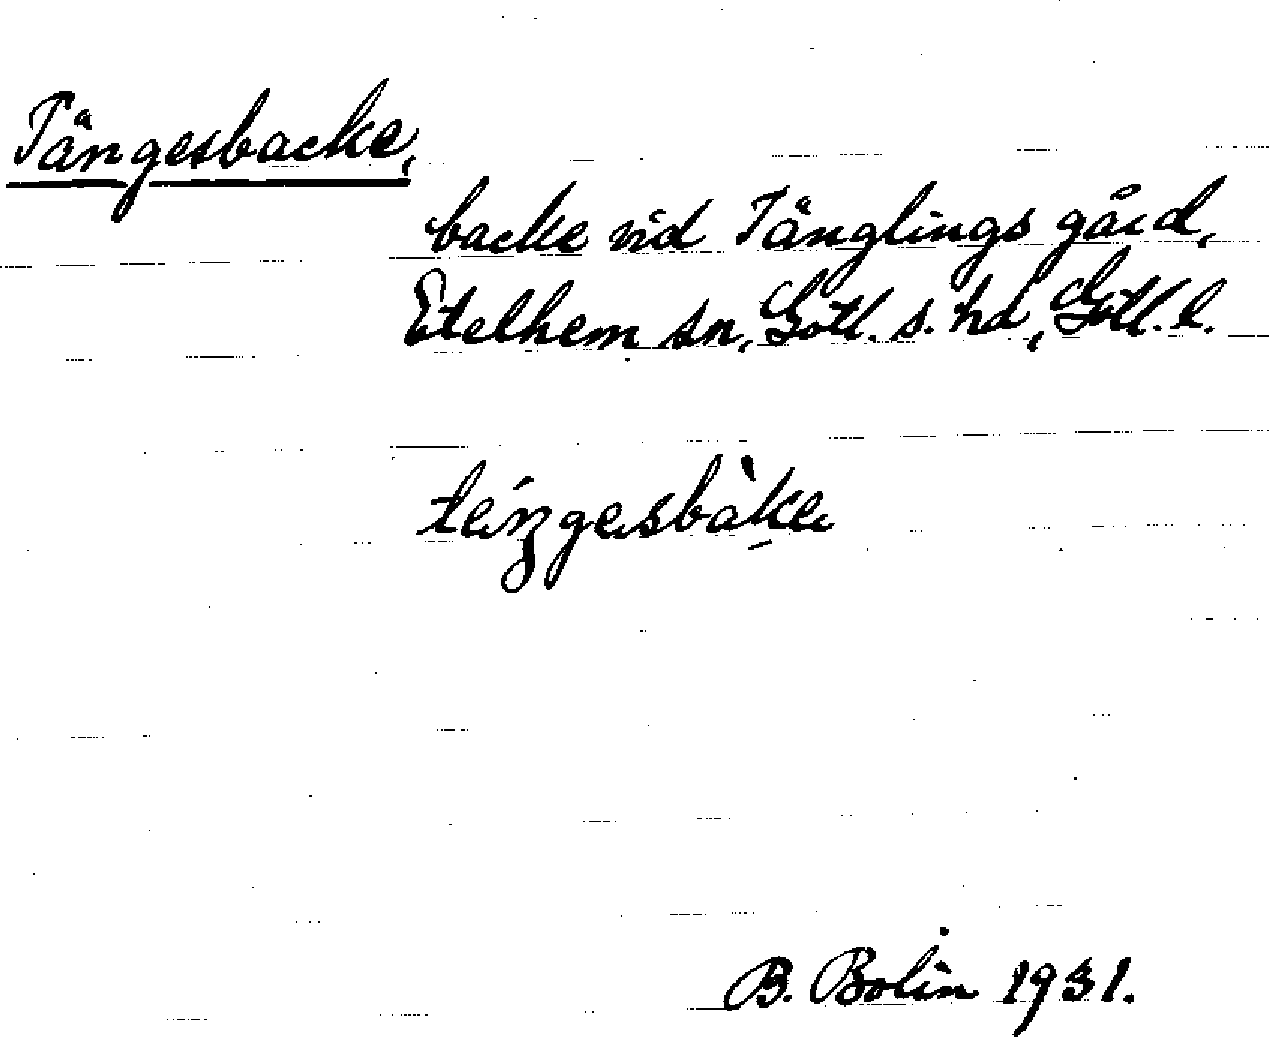 Tängesbacke,
backe vid Tänglings gård,
Etelhem sn, Gotl. s. hd, Gotl. l.
téŋgesbàke
B. Bolin 1931.